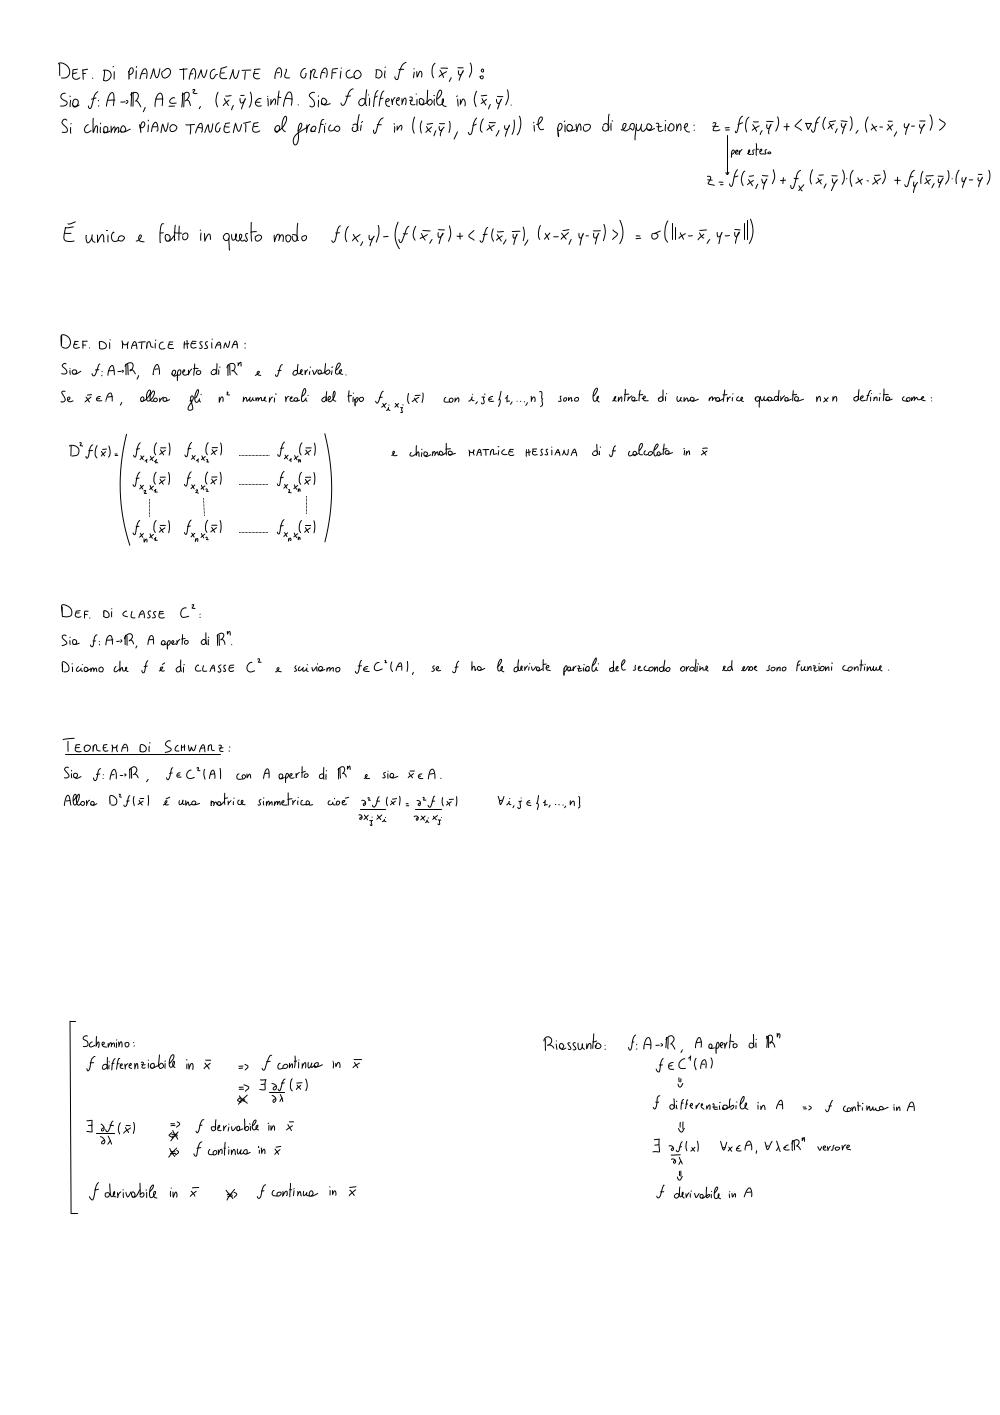 DEF. DI PIANO TANGENTE AL GRAFICO DI f in (x̄, ȳ):
Sia f: A→ℝ, A⊆ℝ², (x̄, ȳ)∈ int A. Sia f differenziabile in (x̄, ȳ).
Si chiama PIANO TANGENTE al grafico di f in ((x̄,ȳ), f(x̄,y)) il piano di equazione: z = f(x̄,ȳ) + <∇f(x̄,ȳ), (x-x̄, y-ȳ)>
per esteso
z = f(x̄,ȳ) + f_x (x̄,ȳ)·(x-x̄) + f_y(x̄,ȳ)·(y-ȳ)
É unico e fatto in questo modo f(x,y) - (f(x̄,ȳ) + < f(x̄,ȳ), (x-x̄, y-ȳ) >) = σ(||x-x̄, y-ȳ||)
DEF. DI MATRICE HESSIANA:
Sia f: A→ℝ, A aperto di ℝⁿ e f derivabile.
Se x̄∈A, allora gli n² numeri reali del tipo f_{x_i x_j}(x̄) con i,j∈{1,...,n} sono le entrate di una matrice quadrata n×n definita come:
D²f(x̄) = ( f_{x_1 x_1}(x̄) f_{x_1 x_2}(x̄) ........ f_{x_1 x_n}(x̄) e chiamata MATRICE HESSIANA di f calcolata in x̄
f_{x_2 x_1}(x̄) f_{x_2 x_2}(x̄) ........ f_{x_2 x_n}(x̄)
f_{x_n x_1}(x̄) f_{x_n x_2}(x̄) ........ f_{x_n x_n}(x̄) )
DEF. DI CLASSE C²:
Sia f: A→ℝ, A aperto di ℝⁿ.
Diciamo che f é di CLASSE C² e scriviamo f∈C²(A), se f ha le derivate parziali del secondo ordine ed esse sono funzioni continue.
TEOREMA DI SCHWARZ:
Sia f: A→ℝ, f∈C²(A) con A aperto di ℝⁿ e sia x̄∈A.
Allora D²f(x̄) é una matrice simmetrica cioé ∂²f/∂x_j x_i (x̄) = ∂²f/∂x_i x_j (x̄) ∀i,j∈{1,...,n}
Schemino:
f differenziabile in x̄ => f continua in x̄
=> ∃ ∂f/∂λ (x̄)
⇍
∃ ∂f/∂λ (x̄) => f derivabile in x̄
⇍
⇏ f continua in x̄
f derivabile in x̄ ⇏ f continua in x̄
Riassunto: f: A→ℝ, A aperto di ℝⁿ
f∈C¹(A)
⇓
f differenziabile in A => f continua in A
⇓
∃ ∂f/∂λ (x) ∀x∈A, ∀λ∈ℝⁿ versore
⇓
f derivabile in A